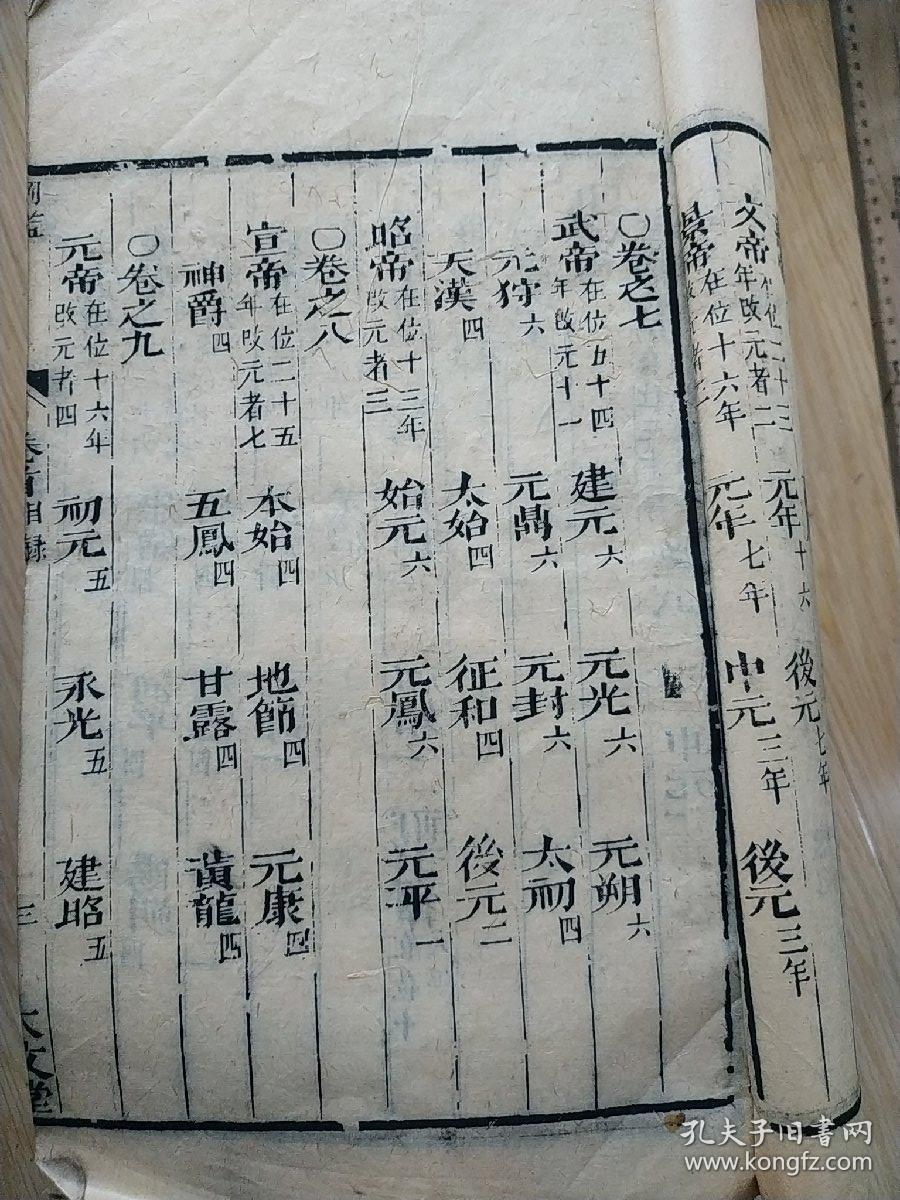 文帝在位二十三年改元者二 元年十六 後元七年
景帝在位十六年 元年七年 中元三年 後元三年
〇卷之七
武帝在位五十四年改元十一 建元六 元光六 元朔六
元狩六 元鼎六 元封六 太初四
天漢四 太始四 征和四 後元二
昭帝在位十三年改元者三 始元六 元鳳六 元平一
〇卷之八
宣帝在位二十五年改元者七 本始四 地節四 元康四
神爵四 五鳳四 甘露四 黃龍四
〇卷之九
元帝在位十六年改元者四 初元五 永光五 建昭五
卷首 目録 三 大文堂
孔夫子旧书网
www.kongfz.com